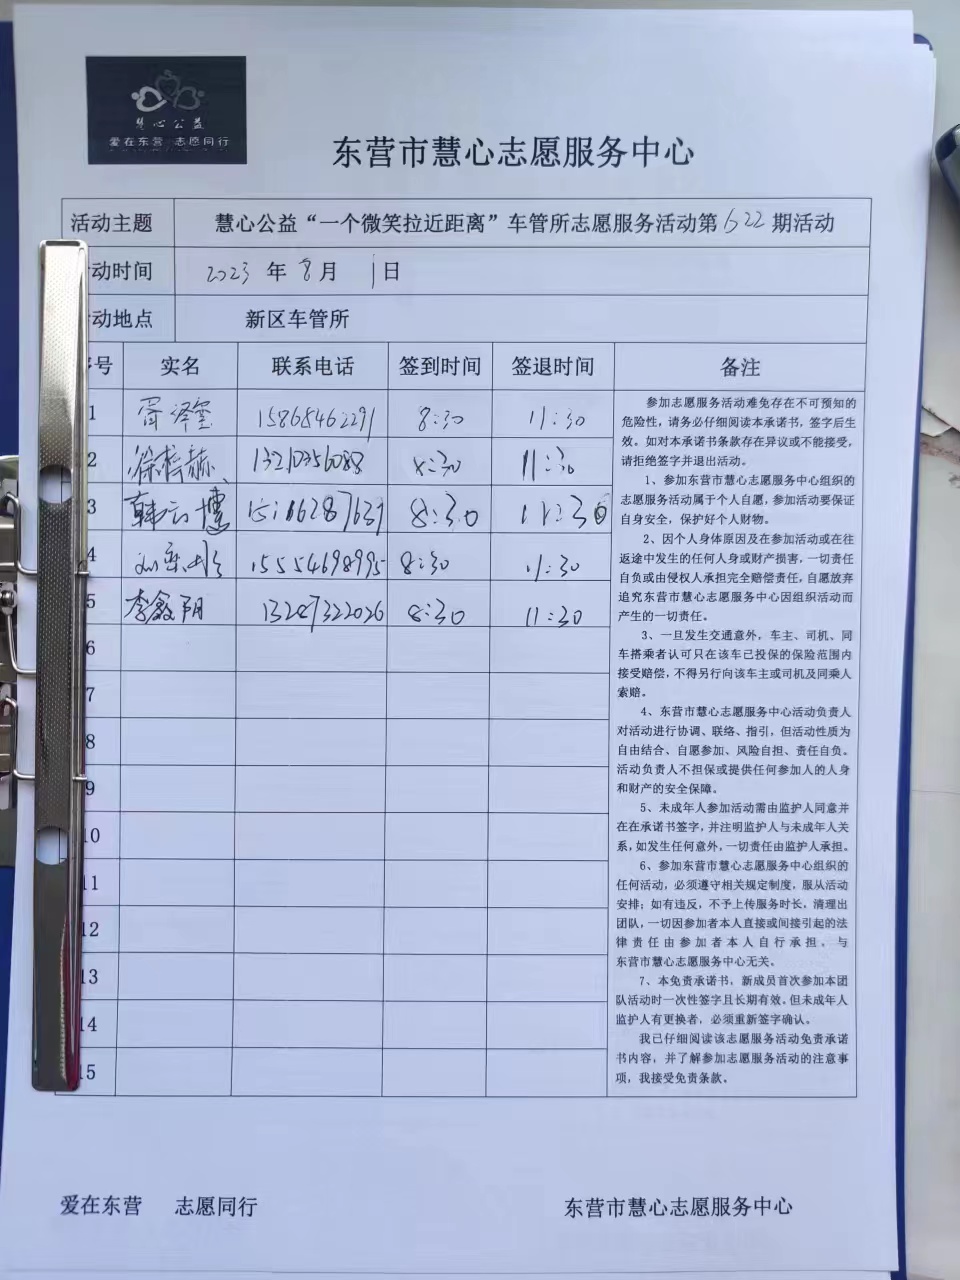 慧心公益
爱在东营 志愿同行
东营市慧心志愿服务中心
活动主题 慧心公益“一个微笑拉近距离”车管所志愿服务活动第622期活动
动时间 2023 年 8 月 1 日
动地点 新区车管所
号 实名 联系电话 签到时间 签退时间 备注
1 15865462291 8:30 11:30
2 8:30 11:30
3 韩云博 8:30 11:30
4 15554698995 8:30 11:30
5 李鑫阳 13287322026 8:30 11:30
6
7
8
9
10
11
12
13
14
15
参加志愿服务活动难免存在不可预知的
危险性，请务必仔细阅读本承诺书，签字后生
效。如对本承诺书条款存在异议或不能接受，
请拒绝签字并退出活动。
1、参加东营市慧心志愿服务中心组织的
志愿服务活动属于个人自愿，参加活动要保证
自身安全，保护好个人财物。
2、因个人身体原因及在参加活动或在往
返途中发生的任何人身或财产损害，一切责任
自负或由侵权人承担完全赔偿责任，自愿放弃
追究东营市慧心志愿服务中心因组织活动而
产生的一切责任。
3、一旦发生交通意外，车主、司机、同
车搭乘者认可只在该车已投保的保险范围内
接受赔偿，不得另行向该车主或司机及同乘人
索赔。
4、东营市慧心志愿服务中心活动负责人
对活动进行协调、联络、指引，但活动性质为
自由结合、自愿参加、风险自担、责任自负。
活动负责人不担保或提供任何参加人的人身
和财产的安全保障。
5、未成年人参加活动需由监护人同意并
在在承诺书签字，并注明监护人与未成年人关
系，如发生任何意外，一切责任由监护人承担。
6、参加东营市慧心志愿服务中心组织的
任何活动，必须遵守相关规定制度，服从活动
安排；如有违反，不予上传服务时长，清理出
团队，一切因参加者本人直接或间接引起的法
律责任由参加者本人自行承担、与
东营市慧心志愿服务中心无关。
7、本免责承诺书，新成员首次参加本团
队活动时一次性签字且长期有效。但未成年人
监护人有更换者，必须重新签字确认。
我已仔细阅读该志愿服务活动免责承诺
书内容，并了解参加志愿服务活动的注意事
项，我接受免责条款。
爱在东营 志愿同行
东营市慧心志愿服务中心